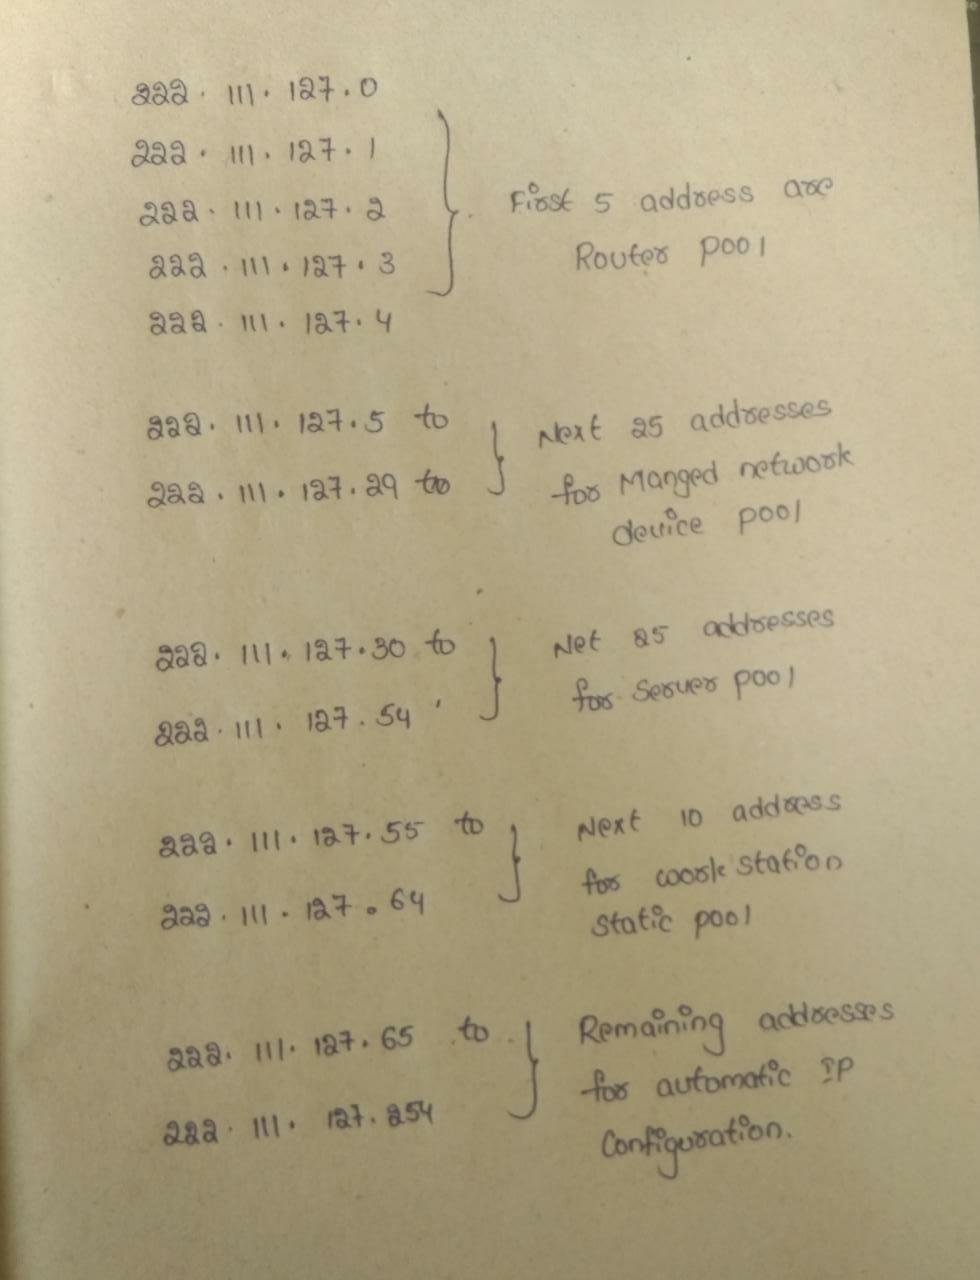 222. 111. 127.0
222. 111. 127.1
222. 111. 127.2
222. 111. 127.3
222. 111. 127.4
First 5 address are
Router pool
222. 111. 127.5 to
222. 111. 127.29 to
Next 25 addresses
for Manged network
device pool
222. 111. 127.30 to
222. 111. 127.54
Net 25 addresses
for Server pool
222. 111. 127.55 to
222. 111. 127.64
Next 10 address
for work station
static pool
222. 111. 127.65 to
222. 111. 127.254
Remaining addresses
for automatic IP
Configuration.